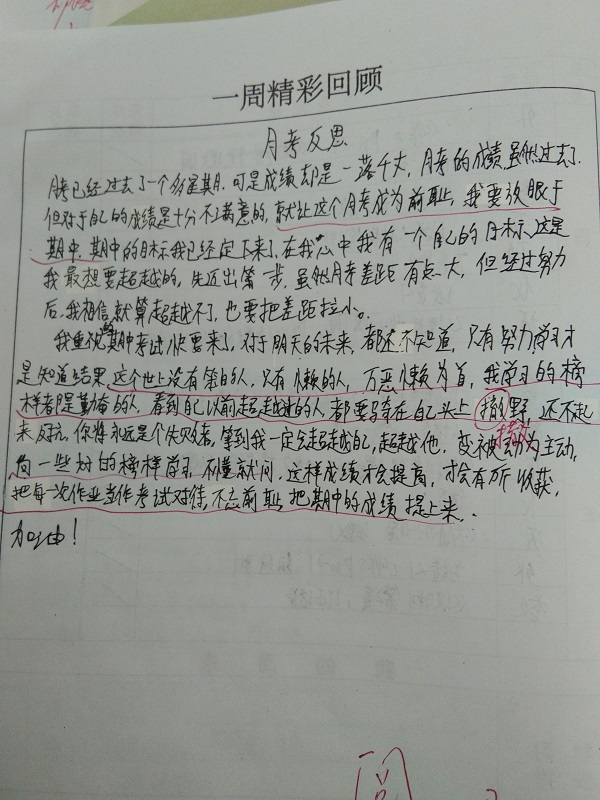 一周精彩回顾
月考反思
月考已经过去了一个多星期,可是成绩却是一落千丈,月考的成绩虽然过去了
但对于自己的成绩是十分不满意的,就让这个月考成为前耻,我要放眼于
期中,期中的目标我已经定下来了,在我心中我有一个自己的目标,这是
我最想要超越的,先迈出第一步,虽然月考差距有点大,但经过努力
后,我相信就算超越不了,也要把差距拉小。
我重视期中考试,快要来了,对于明天的未来,都还不知道,只有努力学习才
是知道结果,这个世上没有笨的人,只有懒的人,万恶懒为首,我学习的榜
样都是勤奋的人,看到自己以前超越过的人,都要骑在自己头上撒野,还不起
来反抗,你将永远是个失败者,等到我一定会超越自己,超越他,变被动为主动,
撒
向一些好的榜样学习,不懂就问,这样成绩才会提高,才会有所收获,
把每一次作业当作考试对待,不忘前耻,把期中的成绩提上来,
加油!
阅